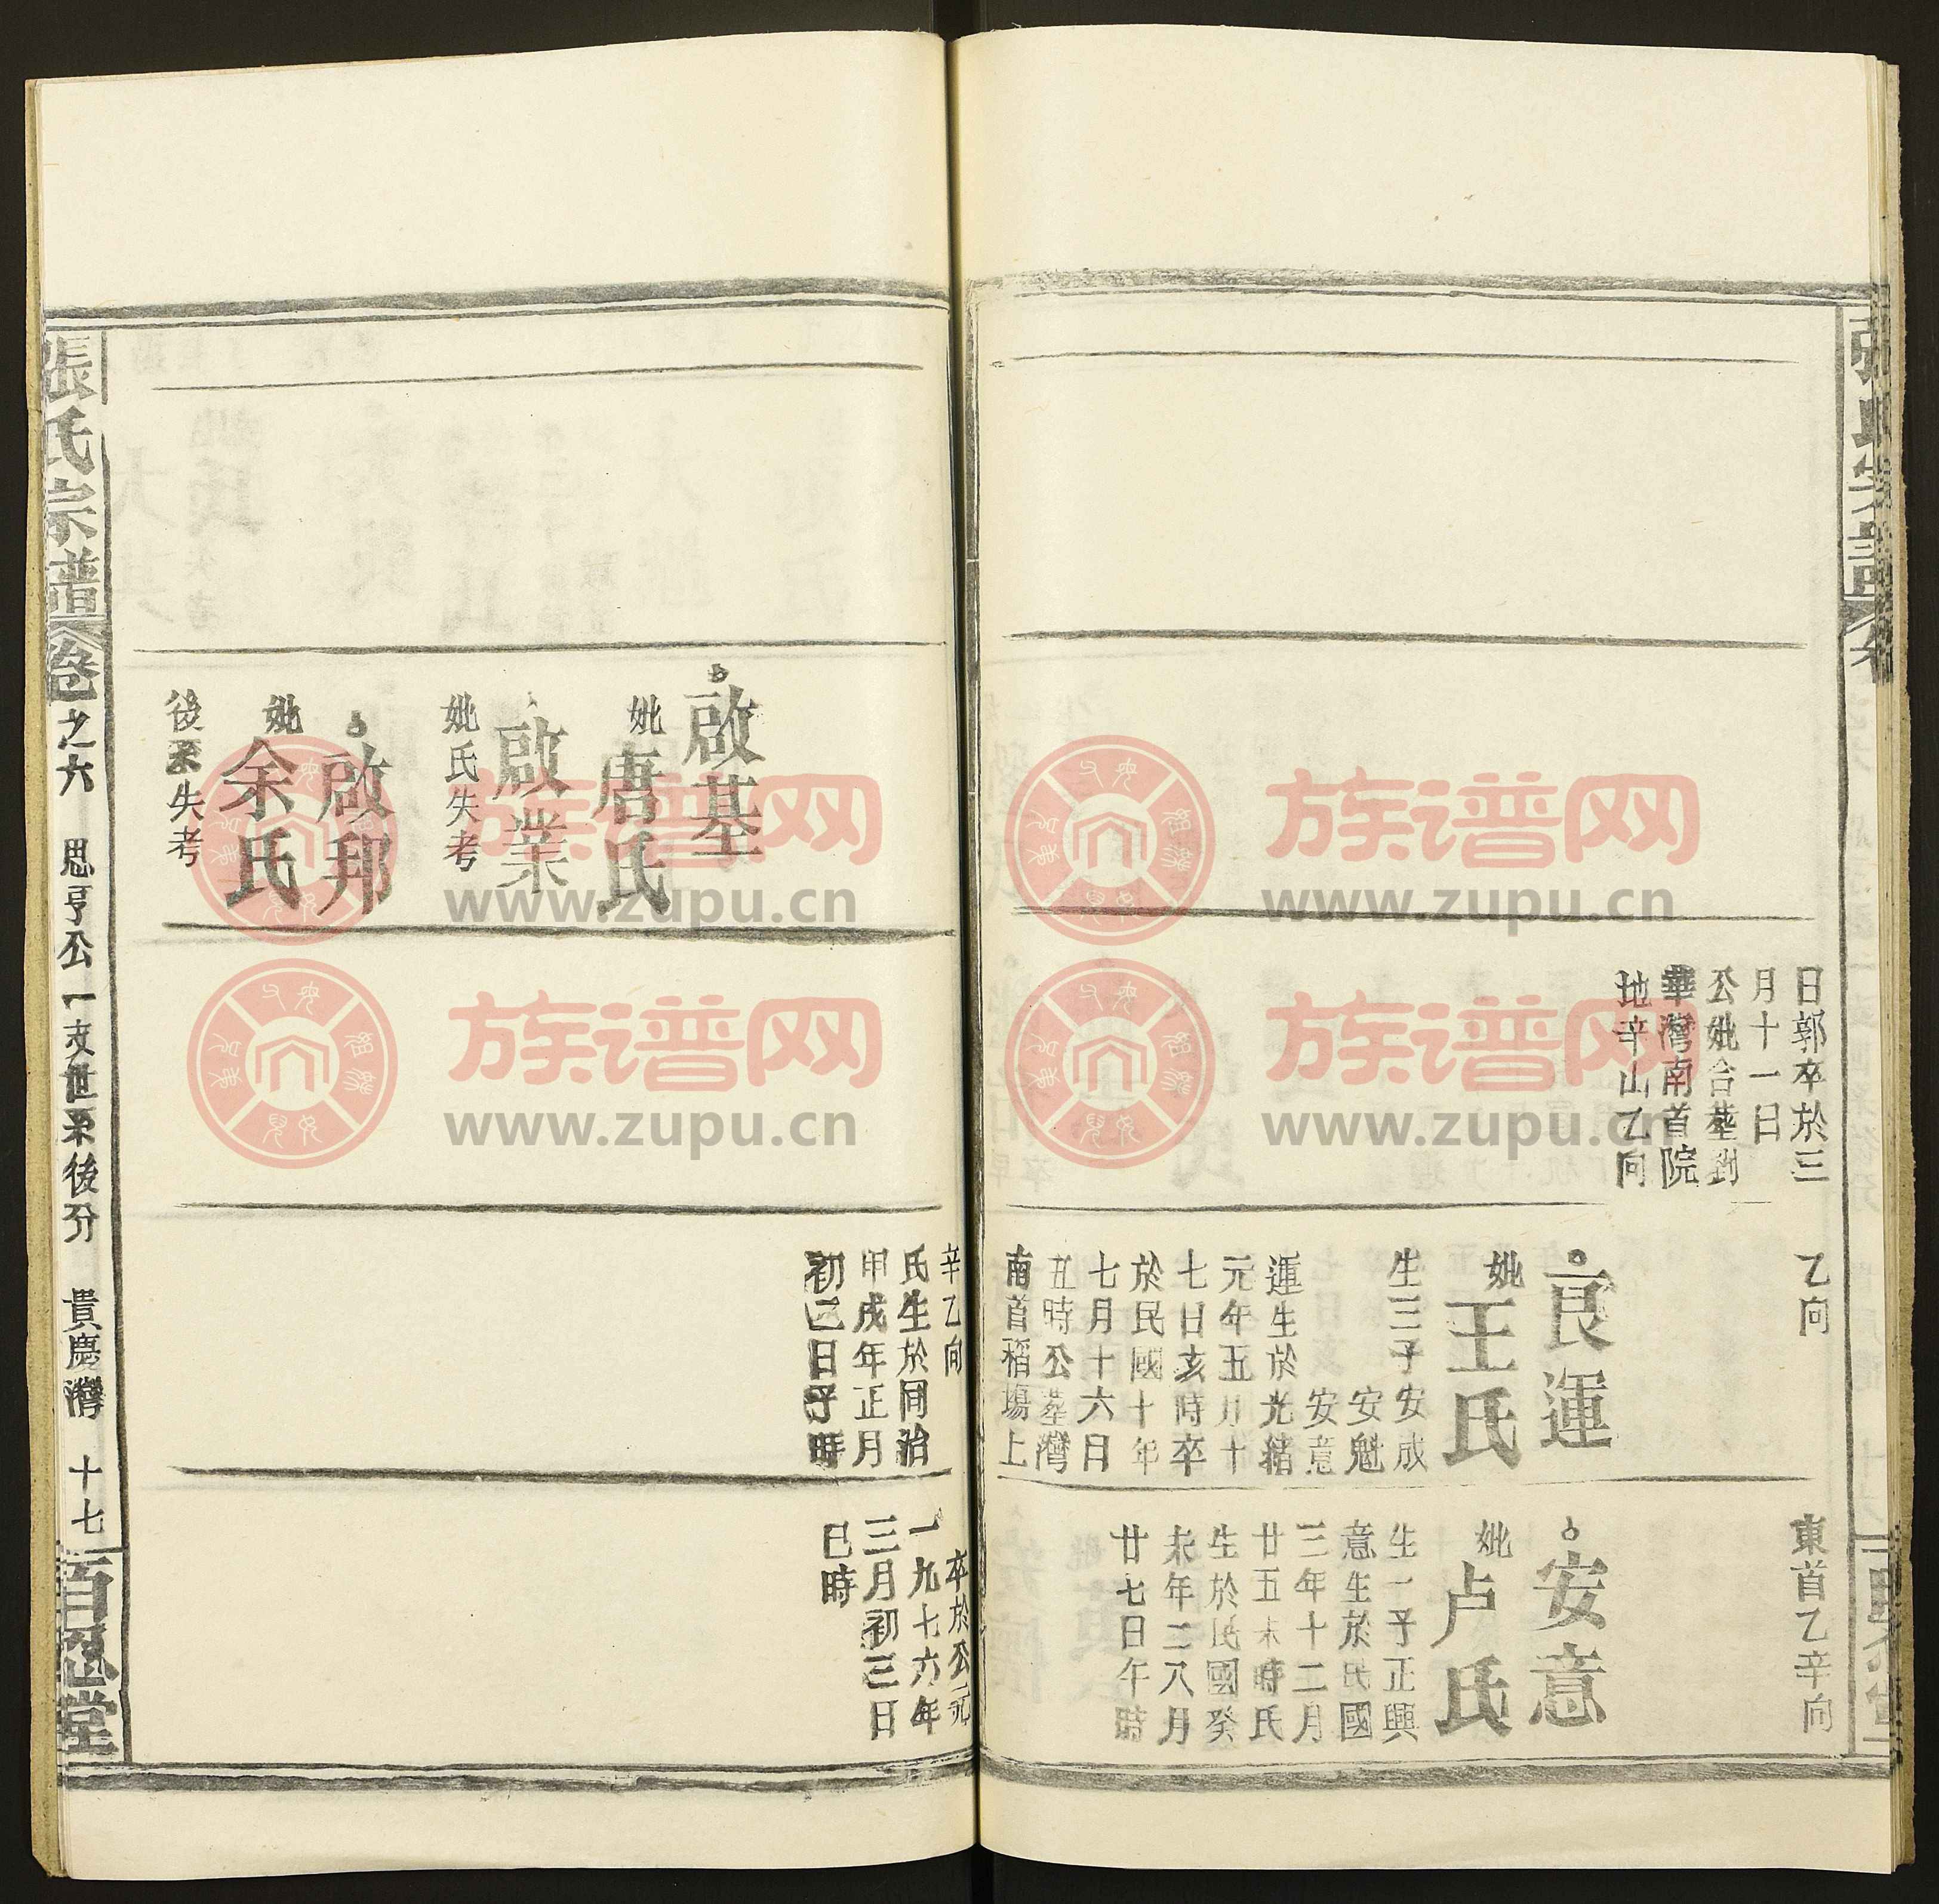 日郭卒於三
月十一日
公妣合塟劉
華灣南首院
地辛山乙向
乙向
良運
妣王氏
生三子安成
安魁
安意
運生於光緒
元年五月十
七日亥時卒
於民國十年
七月十六日
丑時公塟灣
南首稻場上
東首乙辛向
安意
妣卢氏
生一子正興
意生於民國
三年十二月
廿五未時氏
生於民國癸
未年二八月
廿七日午時
啟基
妣唐氏
啟業
妣氏失考
啟邦
妣余氏
後系失考
辛乙向
氏生於同治
甲戌年正月
初二日子時
卒於公元
一九七六年
三月初三日
巳時
張氏宗譜
卷之六
思亨公一支世系後分
貴慶灣
十七
百忍堂
族谱网
www.zupu.cn
族谱网
www.zupu.cn
族谱网
www.zupu.cn
族谱网
www.zupu.cn